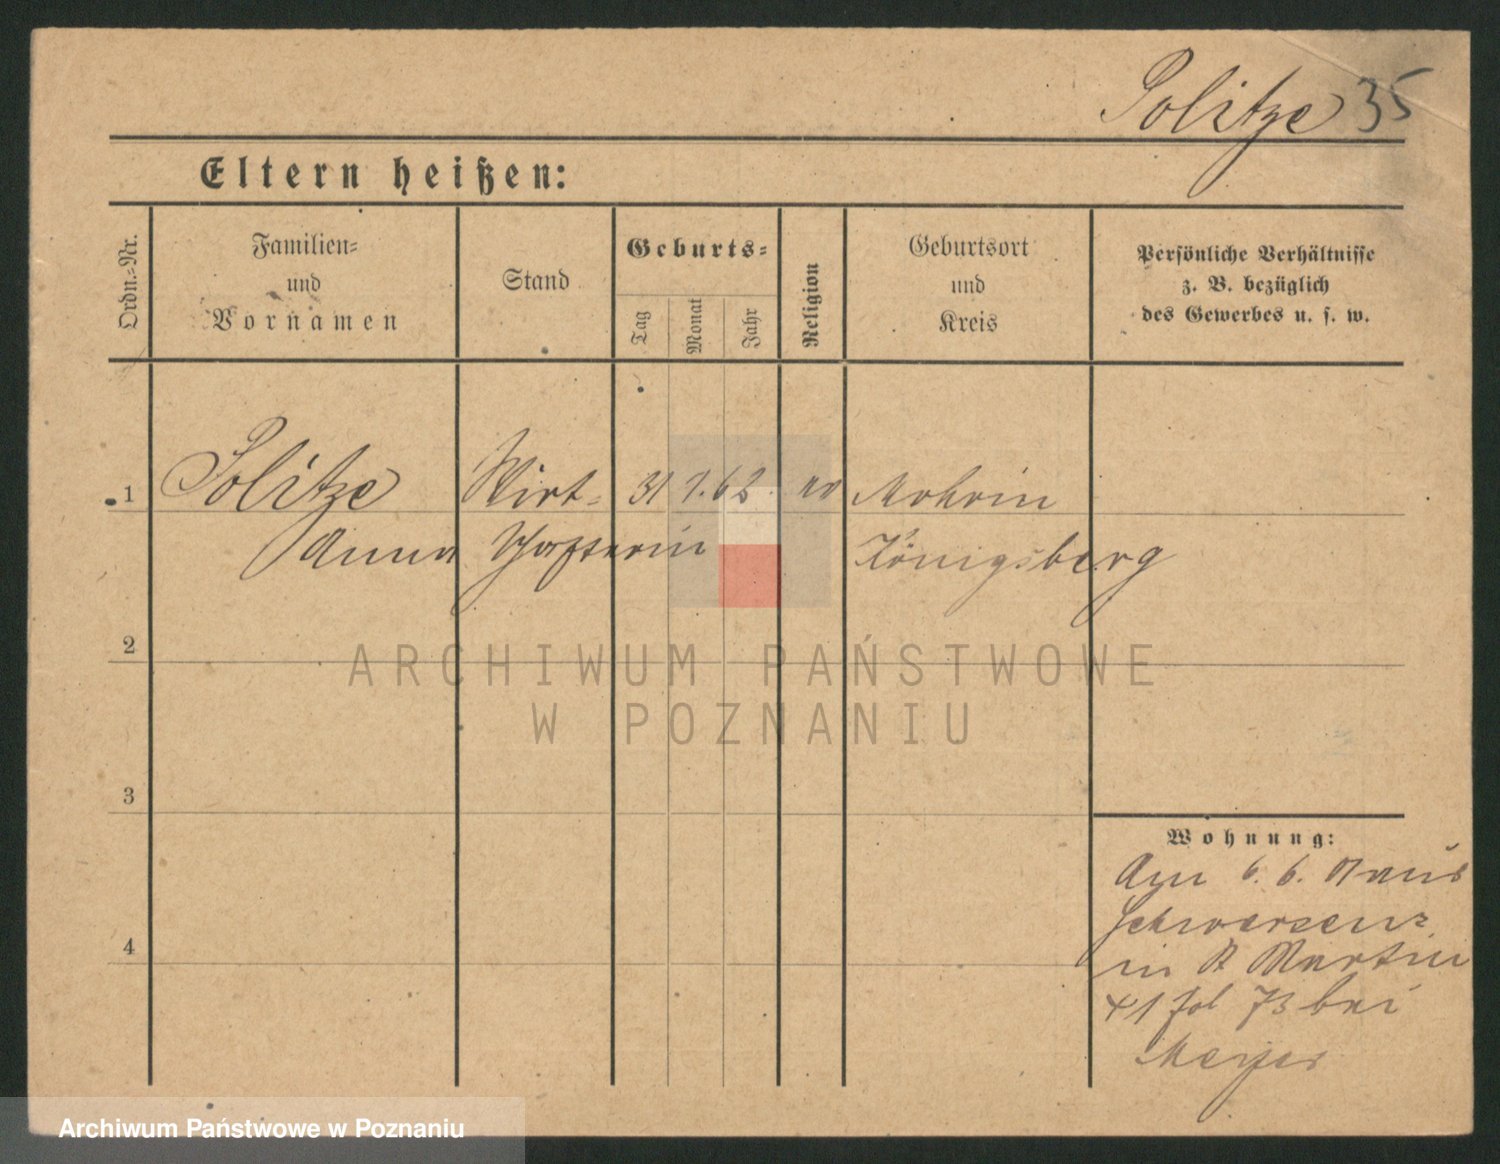 Politze 35
Eltern heißen:
Ordn.-Nr.
Familien-
und
Vornamen
Stand
Geburts-
Tag
Monat
Jahr
Religion
Geburtsort
und
Kreis
Persönliche Verhältnisse
z. B. bezüglich
des Gewerbes u. s. w.
1
Politze
Wirt-
31
62
Mohrin
Anna
schafterin
Königsberg
2
ARCHIWUM PAŃSTWOWE
W POZNANIU
3
Wohnung:
Am 6. 6. aus
Schwersenz
in St Martin
41 fol 73 bei
Meyer
4
Archiwum Państwowe w Poznaniu